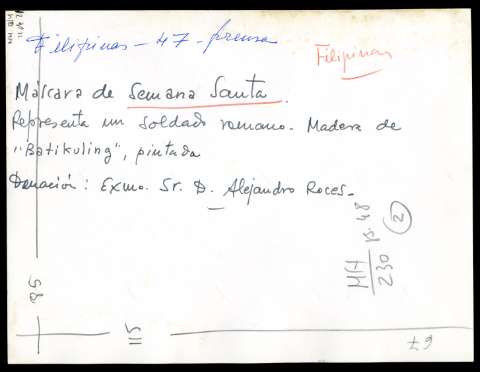 Filipinas - 47 - prensa
Filipinas
Máscara de Semana Santa.
Representa un soldado romano. Madera de
"Batikuling", pintada
Donación: Exmo. Sr. D. Alejandro Roces.
MH
230
2
98
115
67